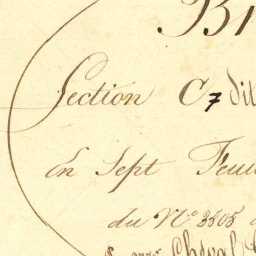 Section C 7 dit
En Sept Feui
du N° 3505
Cheval